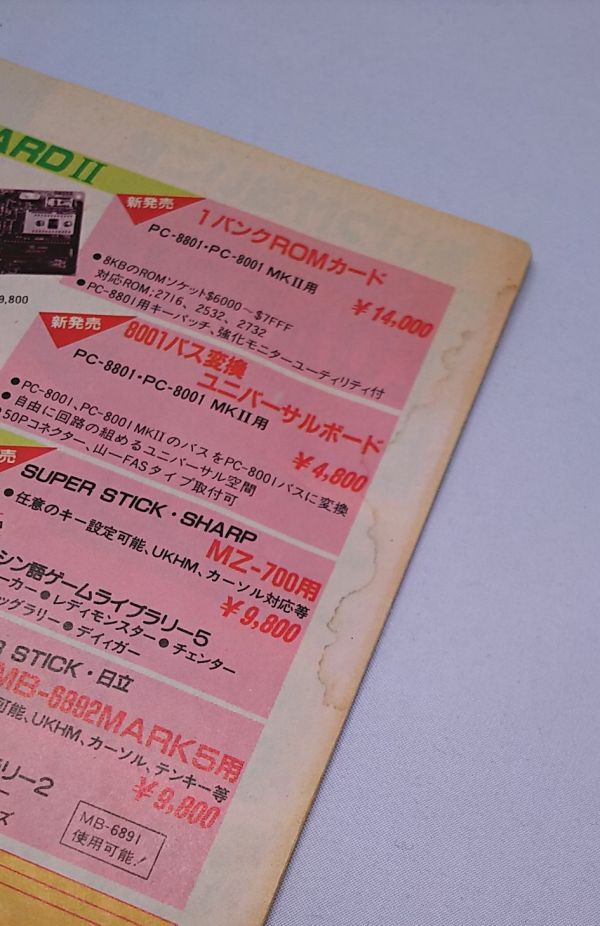 ARDⅡ
新発売
1バンクROMカード
PC-8801・PC-8001 MKⅡ用
¥14,000
●8KBのROMソケット$6000～$7FFF
対応ROM:2716、2532、2732
●PC-8801用キーパッチ、強化モニターユーティリティ付
9,800
新発売
8001バス変換
ユニバーサルボード
PC-8801・PC-8001 MKⅡ用
¥4,800
●PC-8001、PC-8001 MKⅡのバスをPC-8001バスに変換
●自由に回路の組めるユニバーサル空間
50Pコネクター、山一FASタイプ取付可
売
SUPER STICK・SHARP
MZ-700用
●任意のキー設定可能、UKHM、カーソル対応等
¥9,800
シン語ゲームライブラリー5
ーカー●レディモンスター●チェンター
ッグラリー●デイィガー
R STICK・日立
MB-6892MARK5用
可能、UKHM、カーソル、テンキー等
¥9,800
ラリー2
ー
ズ
MB-6891
使用可能!